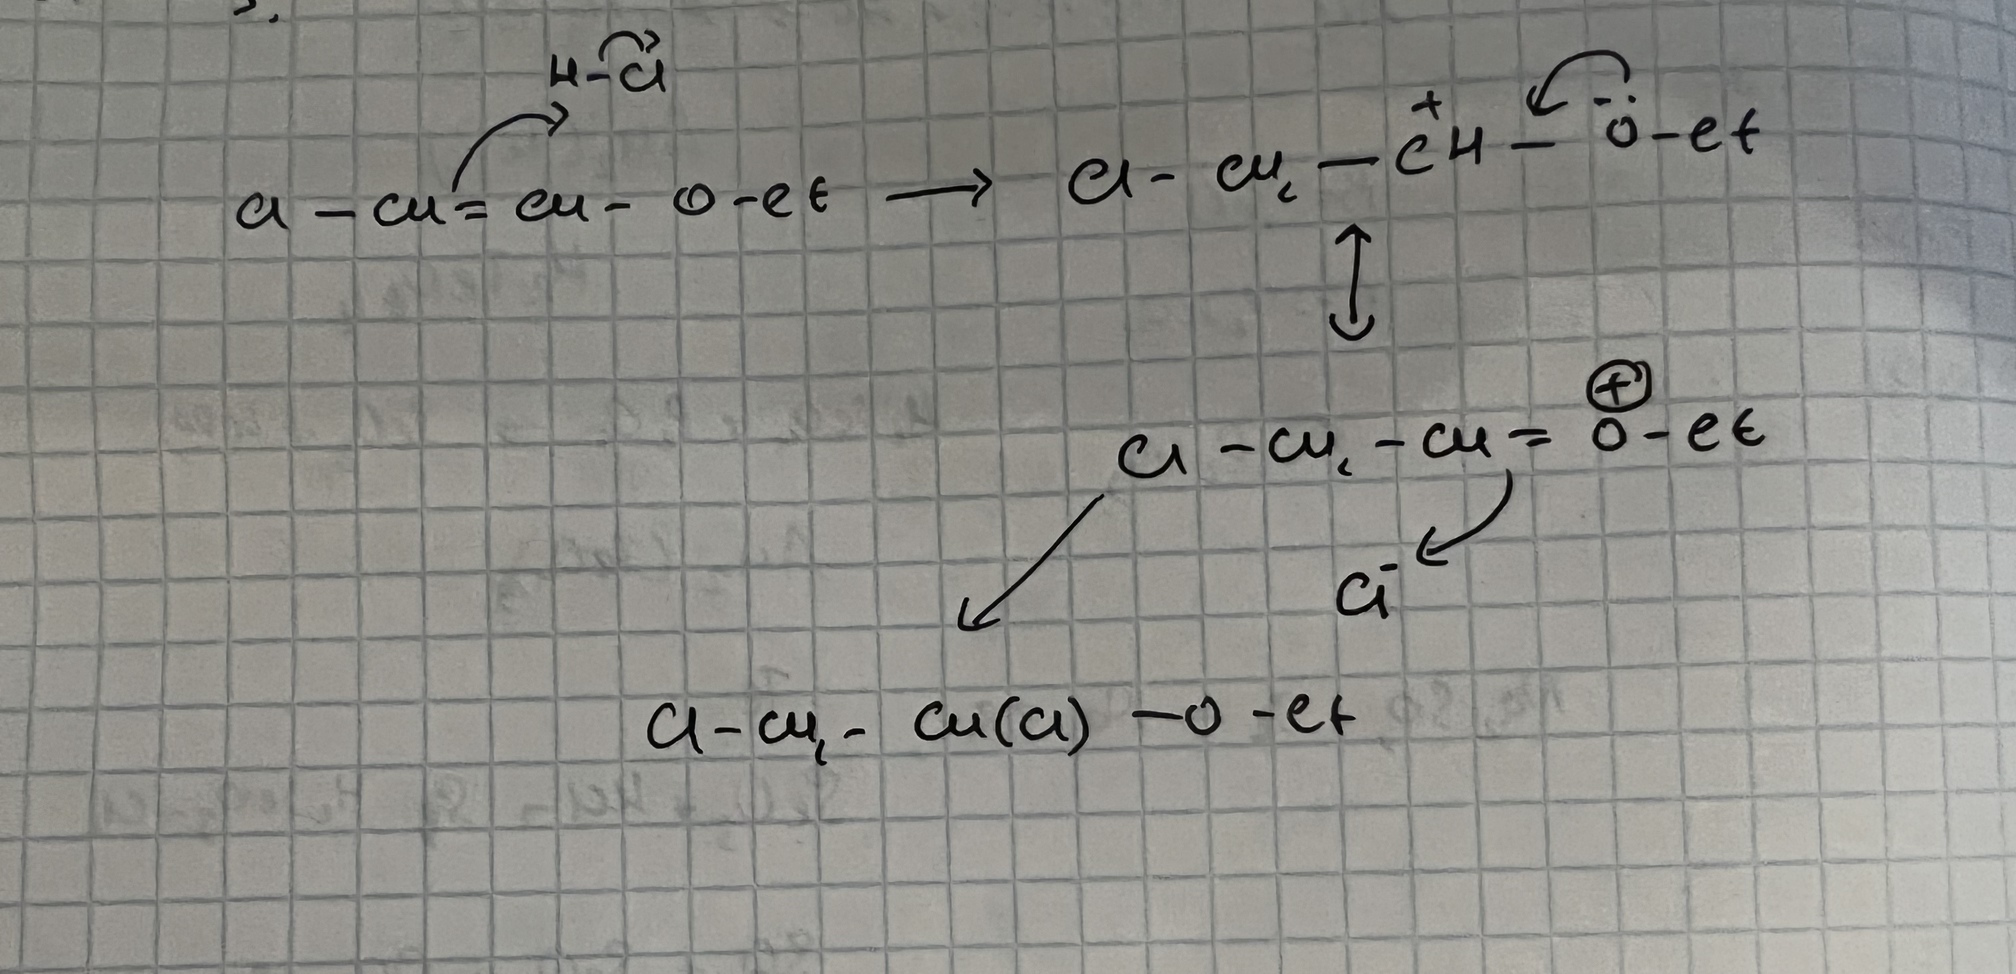 3.
H-Cl
Cl - CH = CH - O - et → Cl - CH₂ - CH⁺ - Ö - et
↕
Cl - CH₂ - CH = O⁺ - et
Cl⁻
Cl - CH₂ - CH(Cl) - O - et